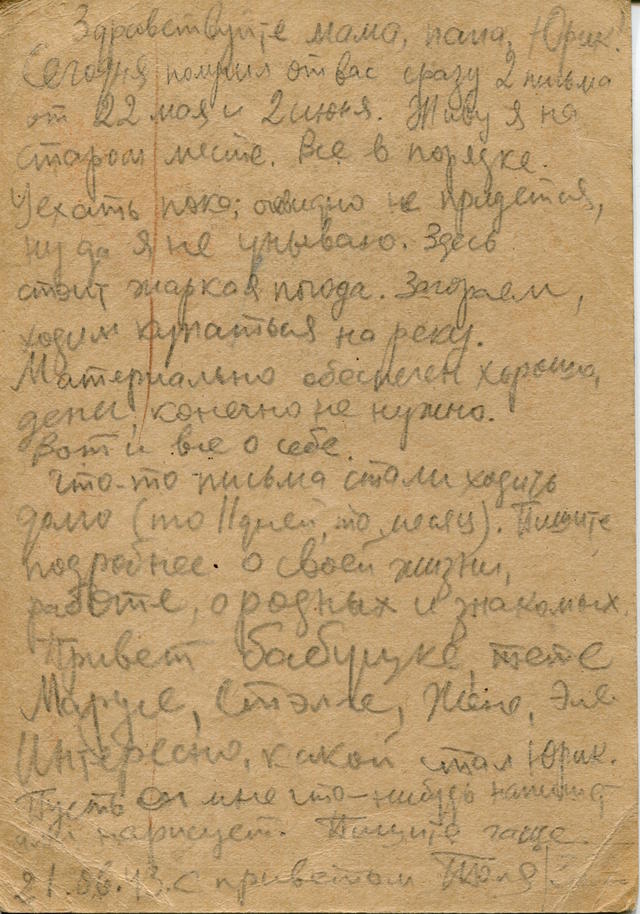 Здравствуйте мама, папа, Юрик!
Сегодня получил от вас сразу 2 письма
от 22 мая и 2 июня. Живу я на
старом месте. Все в порядке.
Уехать пока, очевидно не придется,
ну да я не унываю. Здесь
стоит жаркая погода. Загораем,
ходим купаться на реку.
Материально обеспечен хорошо,
денег, конечно не нужно.
Вот и все о себе.
Что-то письма стали ходить
долго (то 11 дней, то месяц). Пишите
подробнее о своей жизни,
работе, о родных и знакомых.
Привет бабушке, тете
Марусе, Стэлле, Жене, Эле
Интересно, какой стал Юрик.
Пусть он мне что-нибудь напишет
или нарисует. Пишите чаще.
21.06.43. С приветом Толя